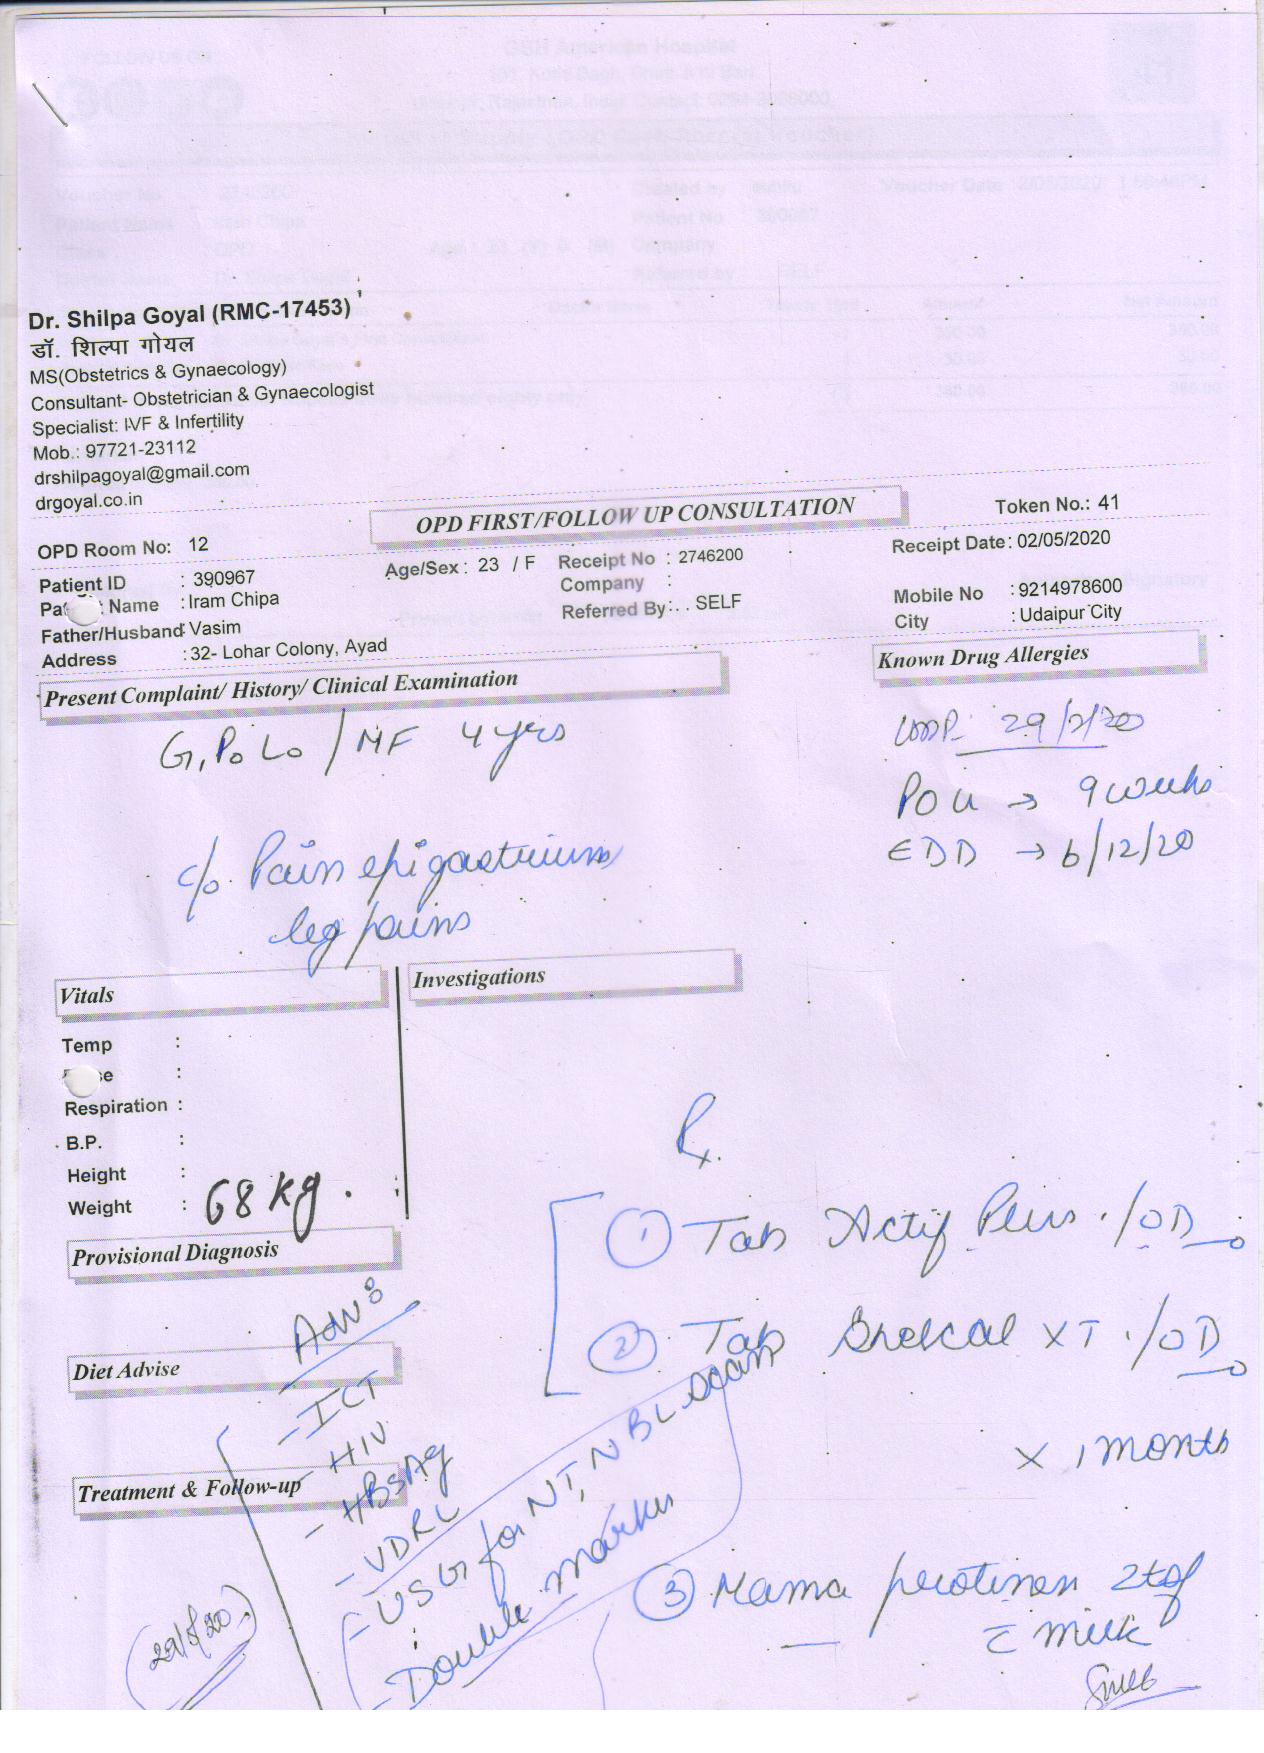 Dr. Shilpa Goyal (RMC-17453)
डॉ. शिल्पा गोयल
MS(Obstetrics & Gynaecology)
Consultant- Obstetrician & Gynaecologist
Specialist: IVF & Infertility
Mob.: 97721-23112
drshilpagoyal@gmail.com
drgoyal.co.in
OPD FIRST/FOLLOW UP CONSULTATION
Token No.: 41
OPD Room No: 12
Age/Sex : 23 / F
Receipt No : 2746200
Receipt Date: 02/05/2020
Patient ID : 390967
Company :
Name : Iram Chipa
Referred By: SELF
Mobile No : 9214978600
Father/Husband Vasim
City : Udaipur City
Address : 32- Lohar Colony, Ayad
Present Complaint/ History/ Clinical Examination
Known Drug Allergies
G1P0L0 / MF 4 yrs
LMP: 29/2/20
POG → 9 weeks
EDD → 6/12/20
c/o Pain epigastrium
leg pains
Vitals
Investigations
Temp :
Respiration :
B.P. :
Height :
Weight : 68 kg.
Rx
Provisional Diagnosis
① Tab Actif Plus 1/OD
② Tab XT 1/OD
x 1 month
Diet Advise
Adv:
- ICT
- HIV
- HBsAg
- VDRL
Treatment & Follow-up
USG for NT, NB scan
- Double marker
③ Mama 2tsf
c milk